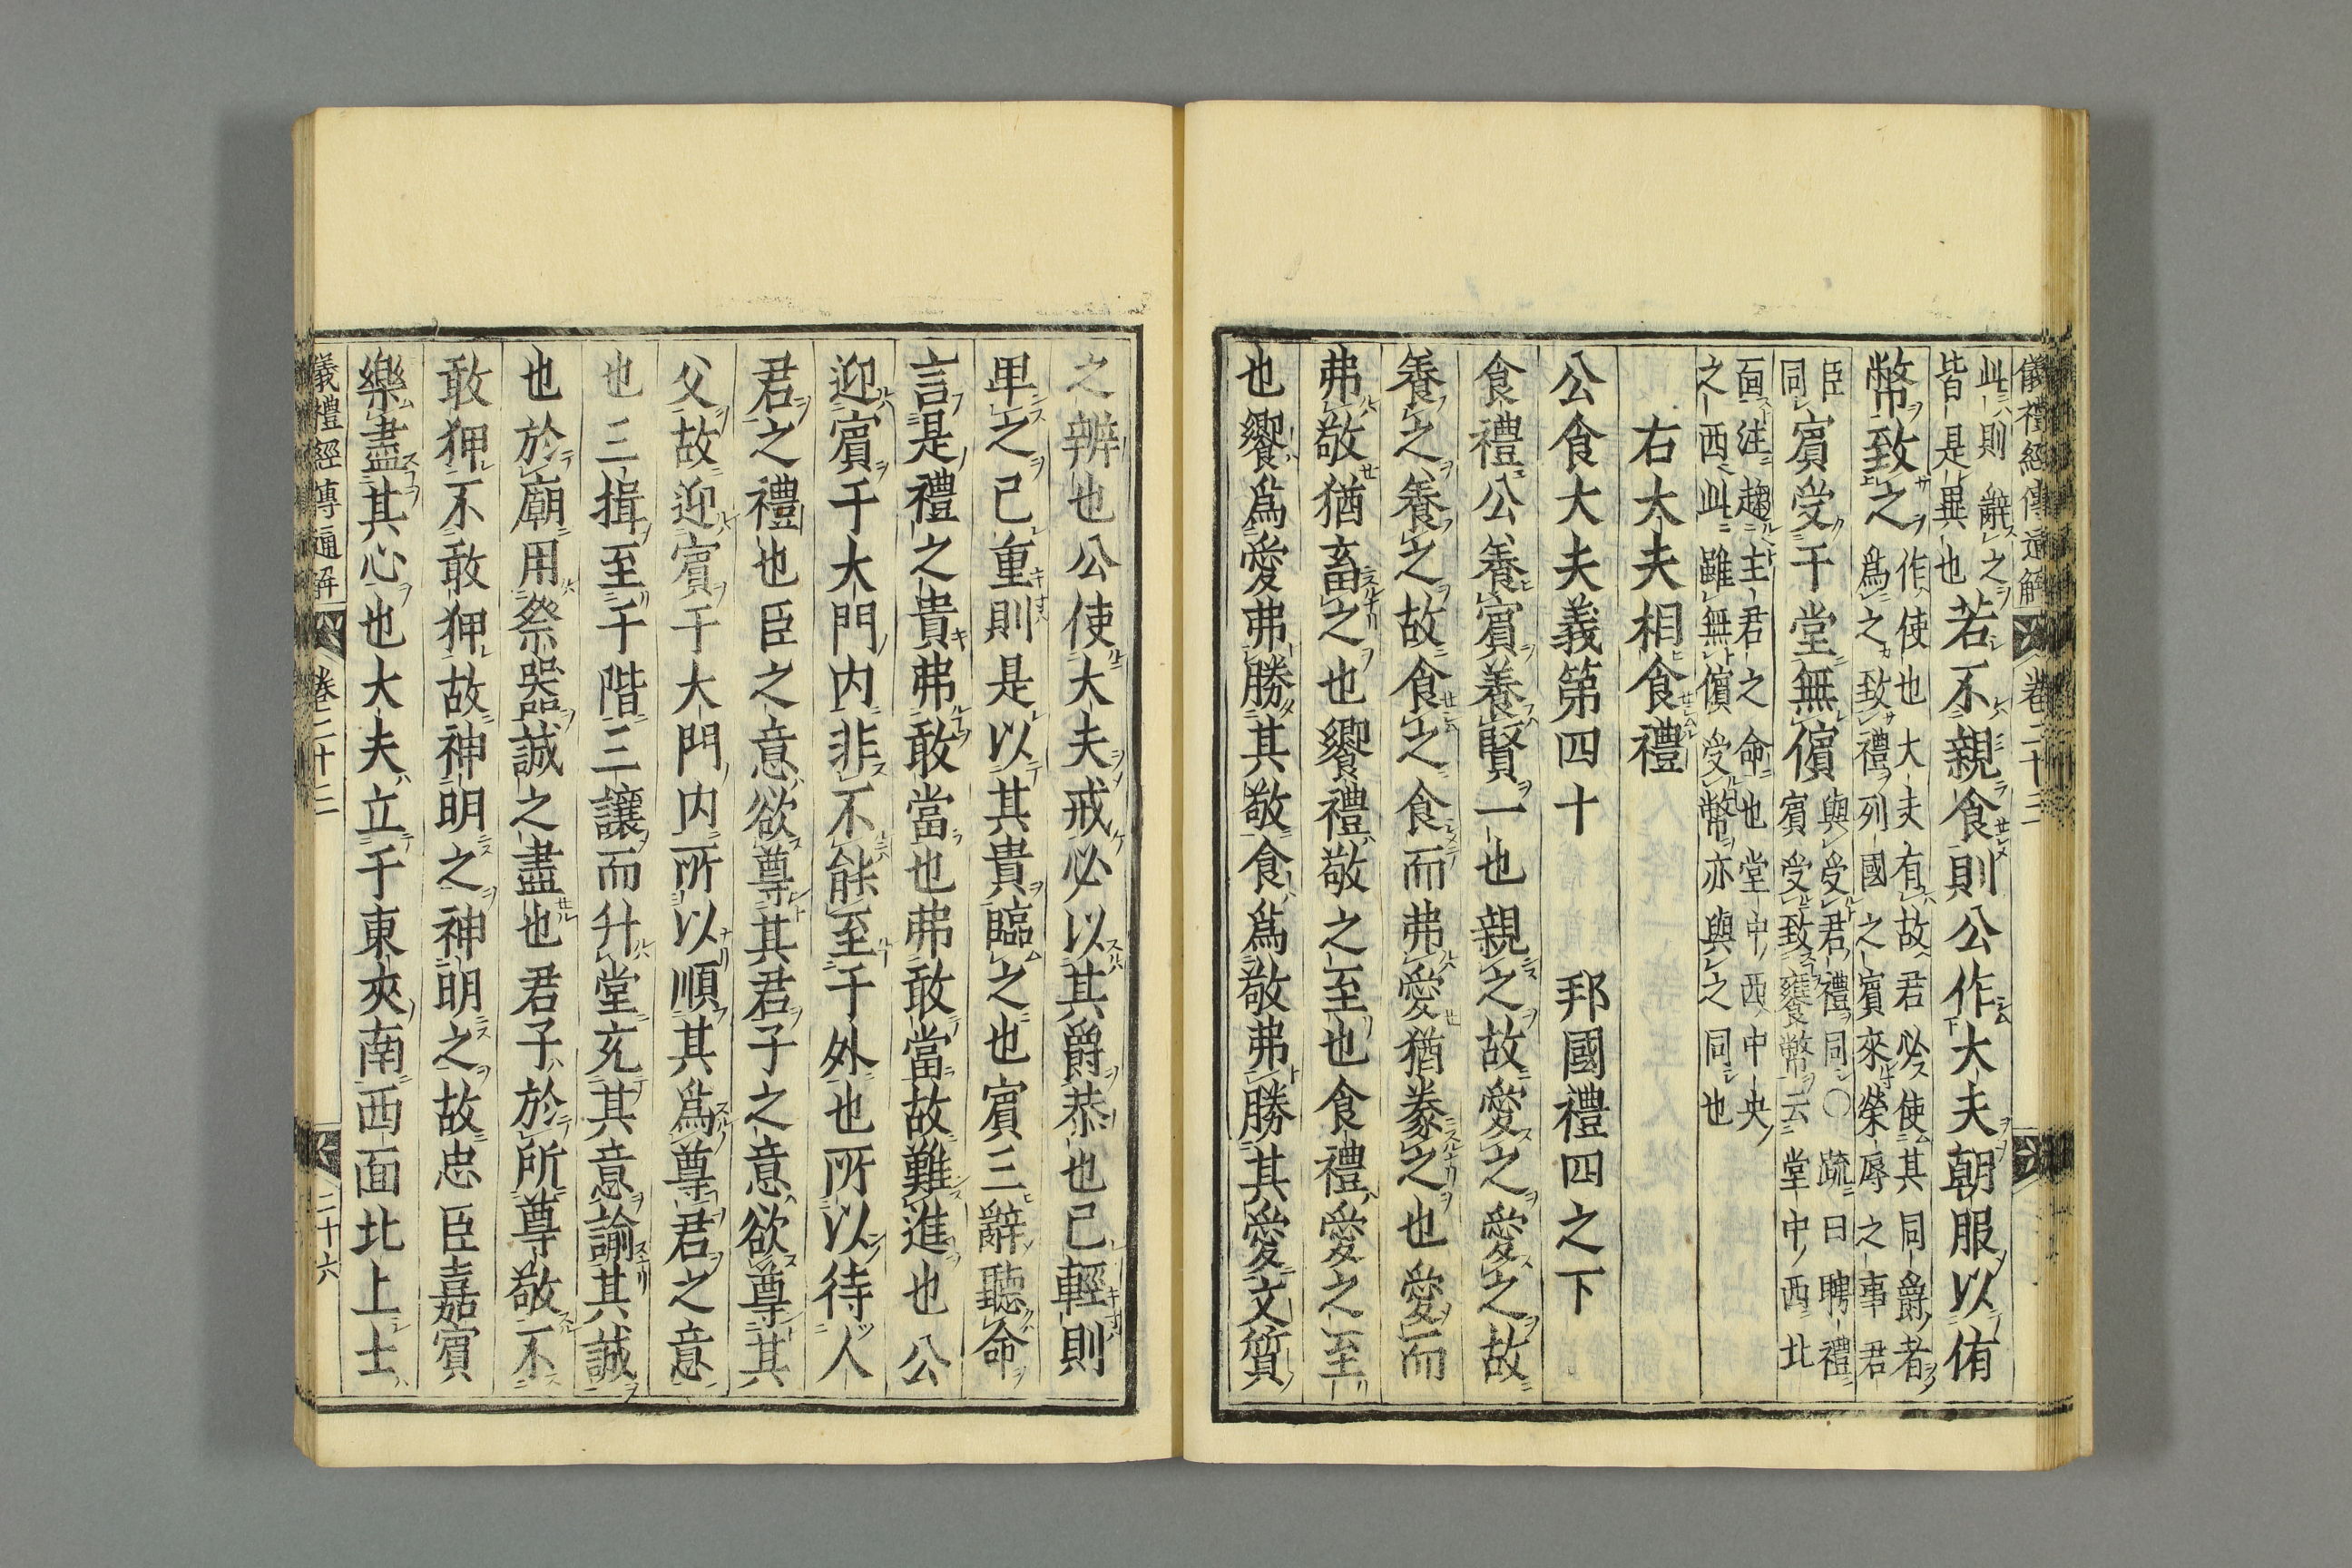 儀禮經傳通解 卷二十三
此則辭之
皆是異也
若不親食則公作大夫朝服以侑
幣致之
作使也大夫有故君必使其同爵者
爲之致禮列國之賓來榮辱之事君
臣
同
賓受于堂無儐
與受君禮同〇疏曰聘禮
賓受致饔餼幣云堂中西北
面注趨主君之命也堂中西中央
之西此雖無儐受幣亦與之同也
右大夫相食禮
公食大夫義第四十 邦國禮四之下
食禮公養賓養賢一也親之故愛之愛之故
養之養之故食之食而弗愛猶豢之也愛而
弗敬猶畜之也饗禮敬之至也食禮愛之至
也饗爲愛弗勝其敬食爲敬弗勝其愛文質
之辨也公使大夫戒必以其爵恭也己輕則
卑之己重則是以其貴臨之也賓三辭聽命
言是禮之貴弗敢當也弗敢當故難進也公
迎賓于大門内非不能至于外也所以待人
君之禮也臣之意欲尊其君子之意欲尊其
父故迎賓于大門内所以順其爲尊君之意
也三揖至于階三讓而升堂充其意諭其誠
也於廟用祭器誠之盡也君子於所尊敬不
敢狎不敢狎故神明之神明之故忠臣嘉賓
樂盡其心也大夫立于東夾南西面北上士
儀禮經傳通解 卷二十三 二十六